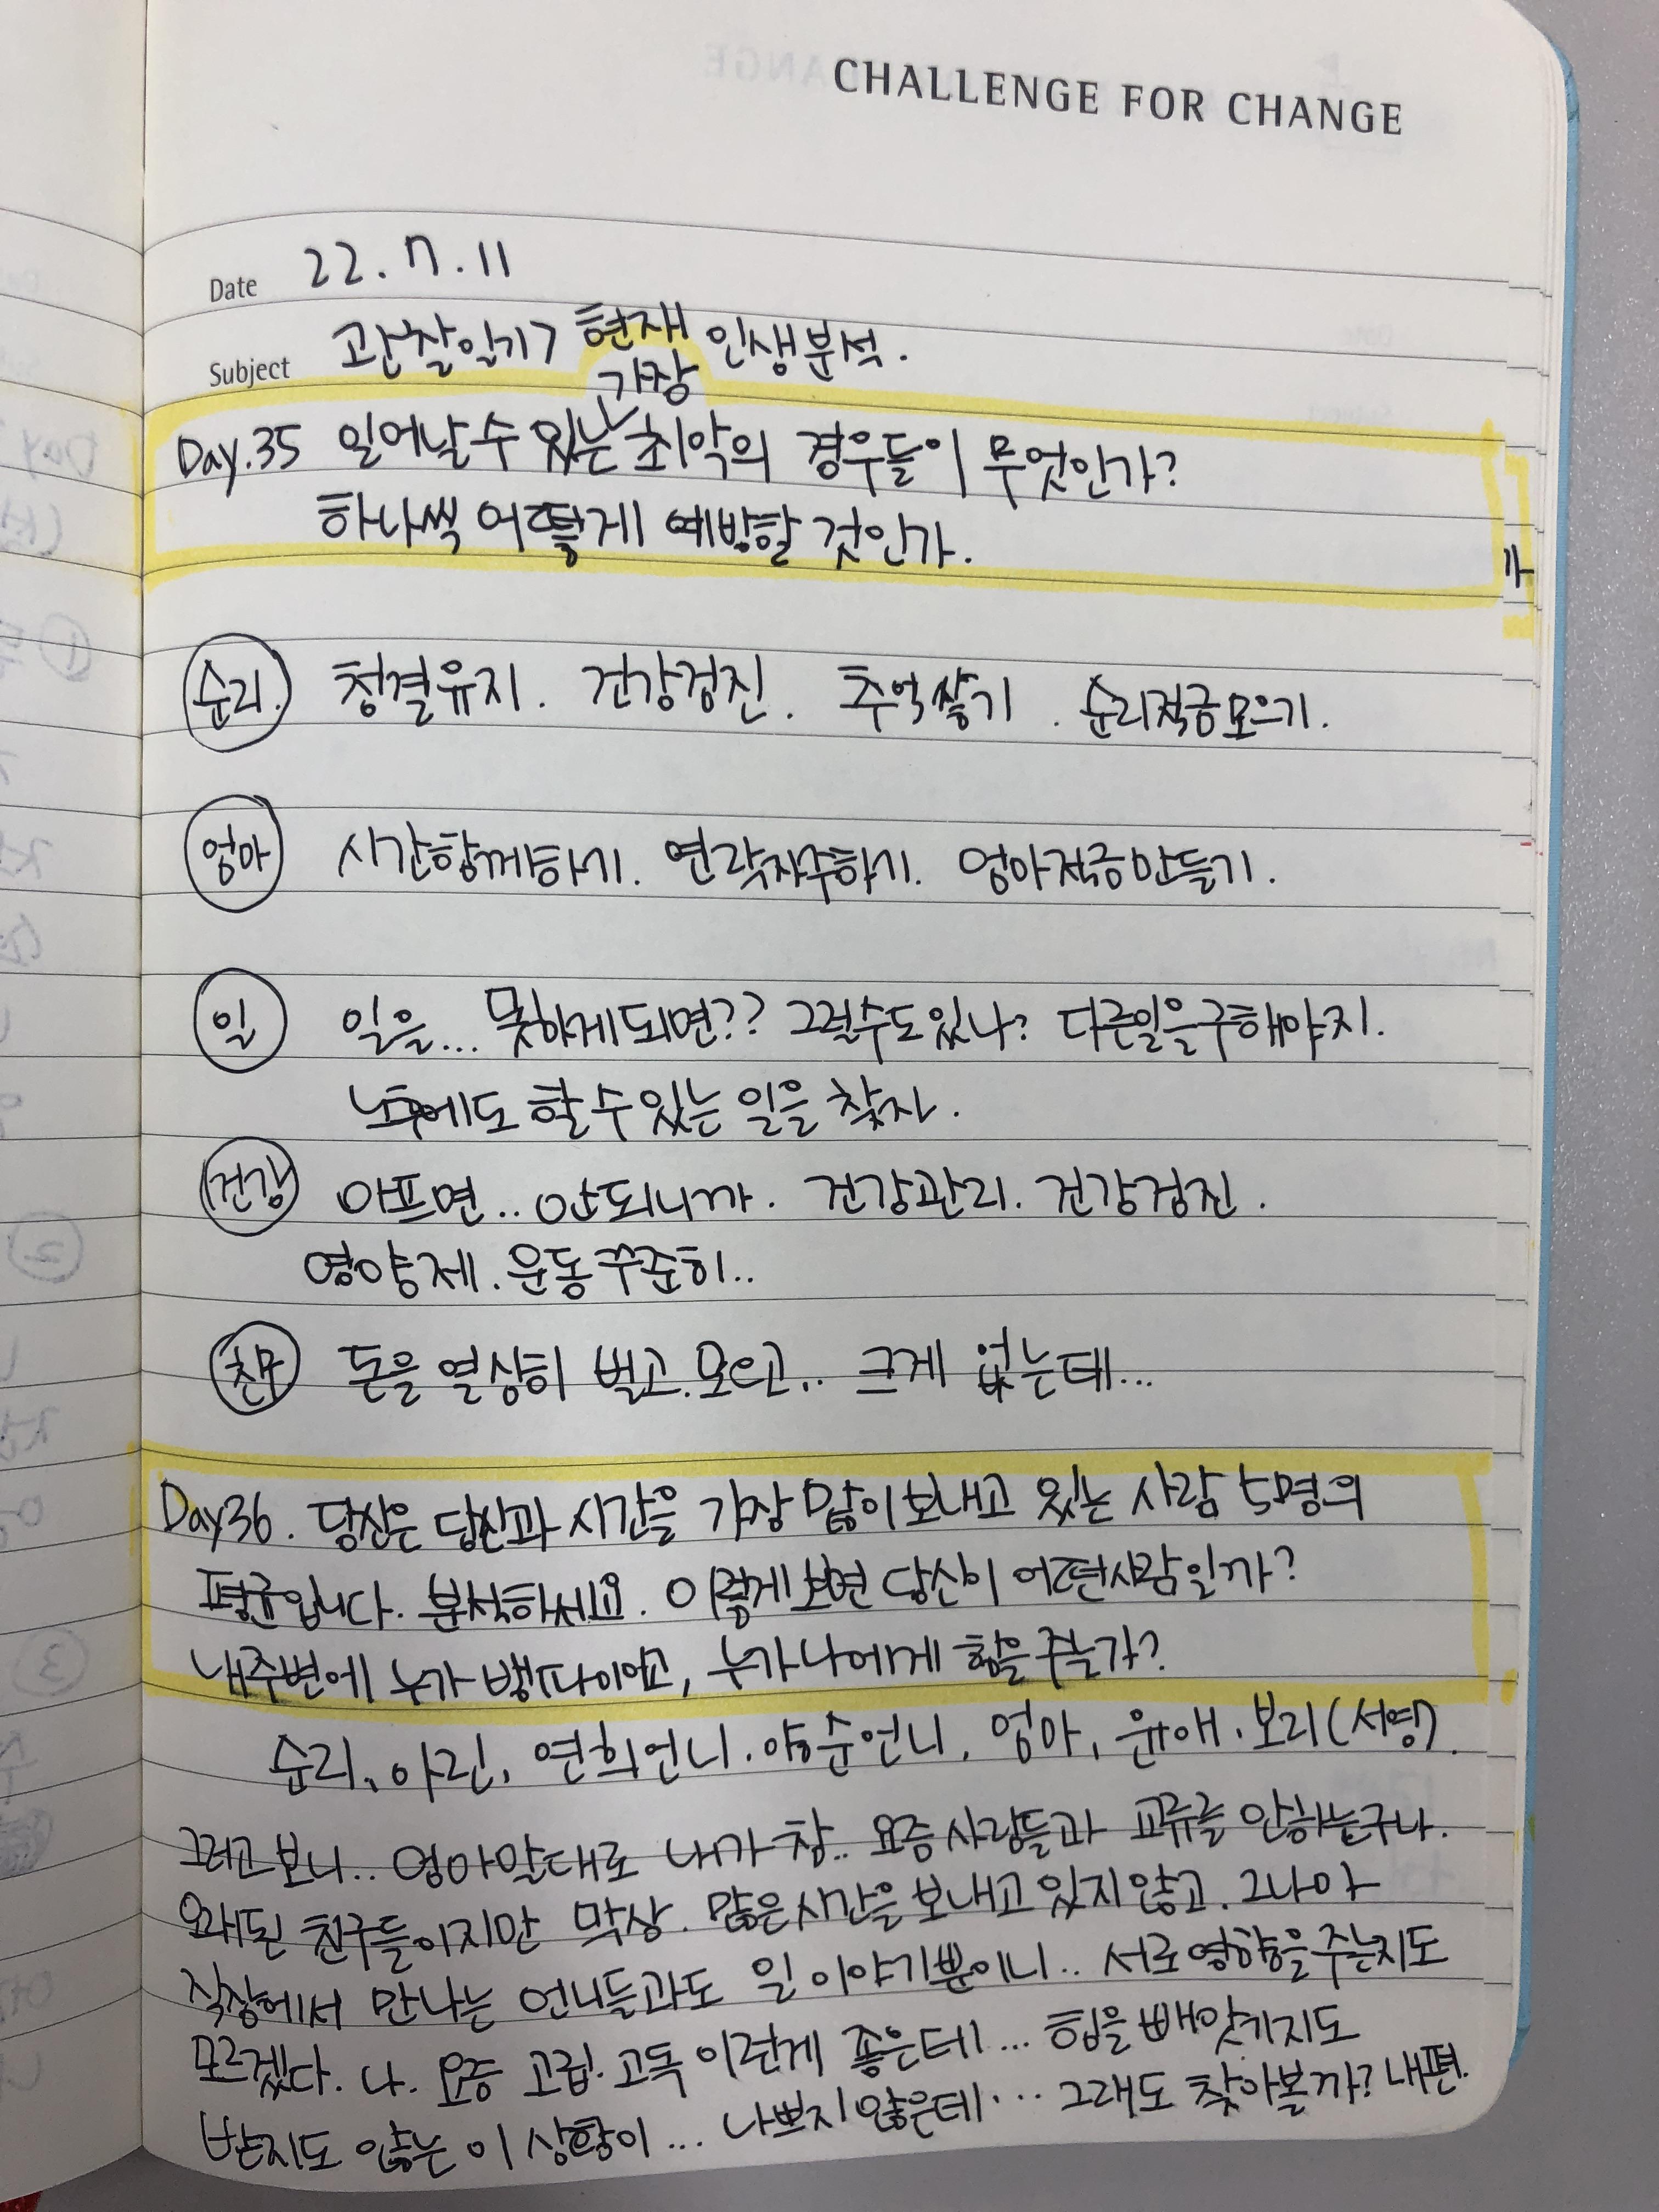 CHALLENGE FOR CHANGE
Date 22.7.11
Subject 관찰일기 7 현재 인생분석.
가장
Day.35 일어날 수 있는 최악의 경우들이 무엇인가?
하나씩 어떻게 예방할 것인가.
가
순리. 청결유지. 건강검진. 추억쌓기. 순리적금모으기.
엄마 시간함께하기. 연락자주하기. 엄마적금만들기.
일 일을... 못하게되면?? 그럴수도있나? 다른일을구해야지.
노후에도 할 수 있는 일을 찾자.
건강 아프면.. 안되니까. 건강관리. 건강검진.
영양제. 운동 꾸준히..
돈을 열심히 벌고. 모으고.. 크게 없는데...
Day36. 당신은 당신과 시간을 가장 많이 보내고 있는 사람 5명의
평균입니다. 분석하세요. 이렇게 보면 당신이 어떤사람일까?
내주변에 누가 뱀파이어고, 누가 나에게 힘을 주는가?
순리, 아린, 연희언니. 양순언니, 엄마, 윤애. 보리(서영).
그러고 보니.. 엄마말대로 내가 참.. 요즘 사람들과 교류를 안하는구나.
오래된 친구들이지만 막상. 많은 시간을 보내고 있지않고. 그나마
직장에서 만나는 언니들과도 일 이야기뿐이니.. 서로 영향을 주는지도
모르겠다. 나. 요즘 고립. 고독 이런게 좋은데... 힘을 빼앗기지도
받지도 않는 이 상황이... 나쁘지 않은데... 그래도 찾아볼까? 내편.